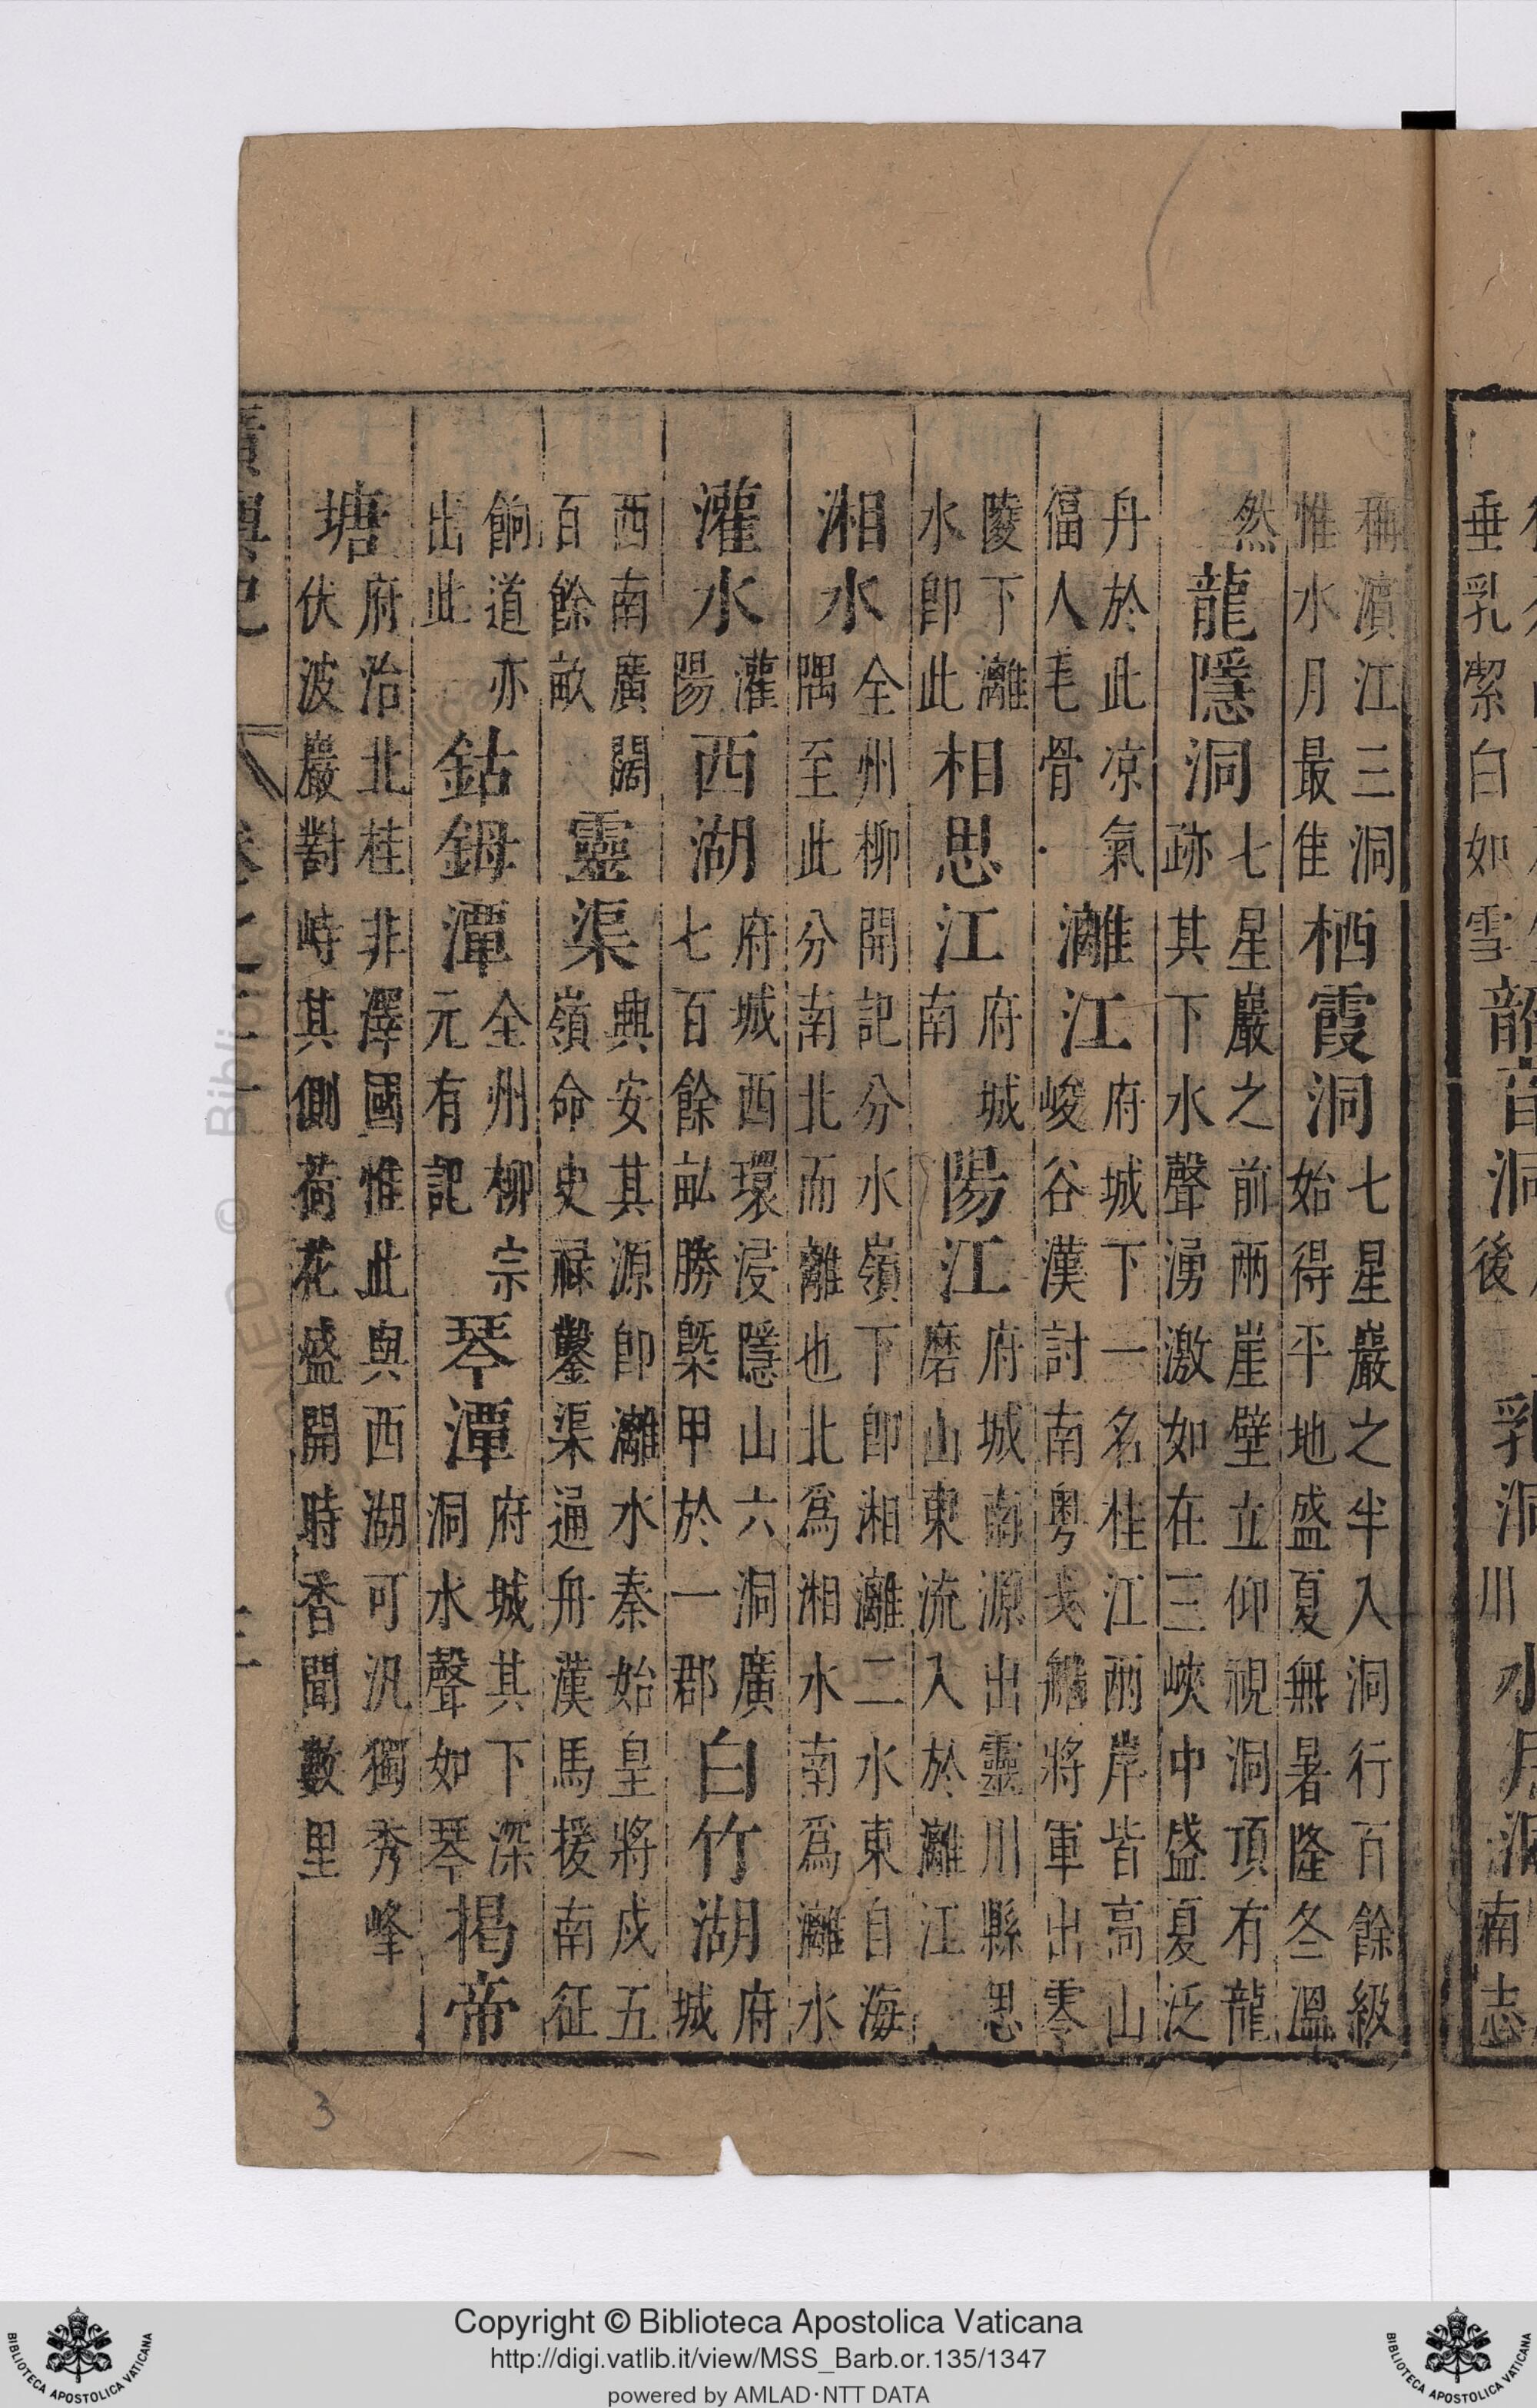 垂乳潔白如雪
韶音洞
後
乳洞
川
水月洞
南志
稱濵江三洞
惟水月最隹
栖霞洞
七星巖之半入洞行百餘級
始得平地盛夏無暑隆冬溫
然
龍隱洞
七星巖之前兩崖壁立仰視洞頂有龍
跡其下水聲湧激如在三峽中盛夏泛
丹於此凉氣
偪人毛骨
灕江
府城下一名桂江兩岸皆高山
峻谷漢討南粤戈船將軍出零
陵下灕
水即此
相思江
府城
南
陽江
府城南源出靈川縣思
磨山東流入於灕江
湘水
全州柳開記分水嶺下即湘灕二水東自海
隅至此分南北而離也北爲湘水南爲灕水
灌水
灌
陽
西湖
府城西環浸隱山六洞廣
七百餘畝勝槩甲於一郡
白竹湖
府
城
西南廣闊
百餘畝
靈渠
興安其源即灕水秦始皇將戍五
嶺命史祿鑿渠通舟漢馬援南征
餉道亦
出此
鈷鉧潭
全州柳宗
元有記
琴潭
府城其下深
洞水聲如琴
揭帝
塘
府治北桂非澤國惟此與西湖可汎獨秀峰
伏波巖對峙其側荷花盛開時香聞數里
3
Copyright © Biblioteca Apostolica Vaticana
http://digi.vatlib.it/view/MSS_Barb.or.135/1347
powered by AMLAD･NTT DATA